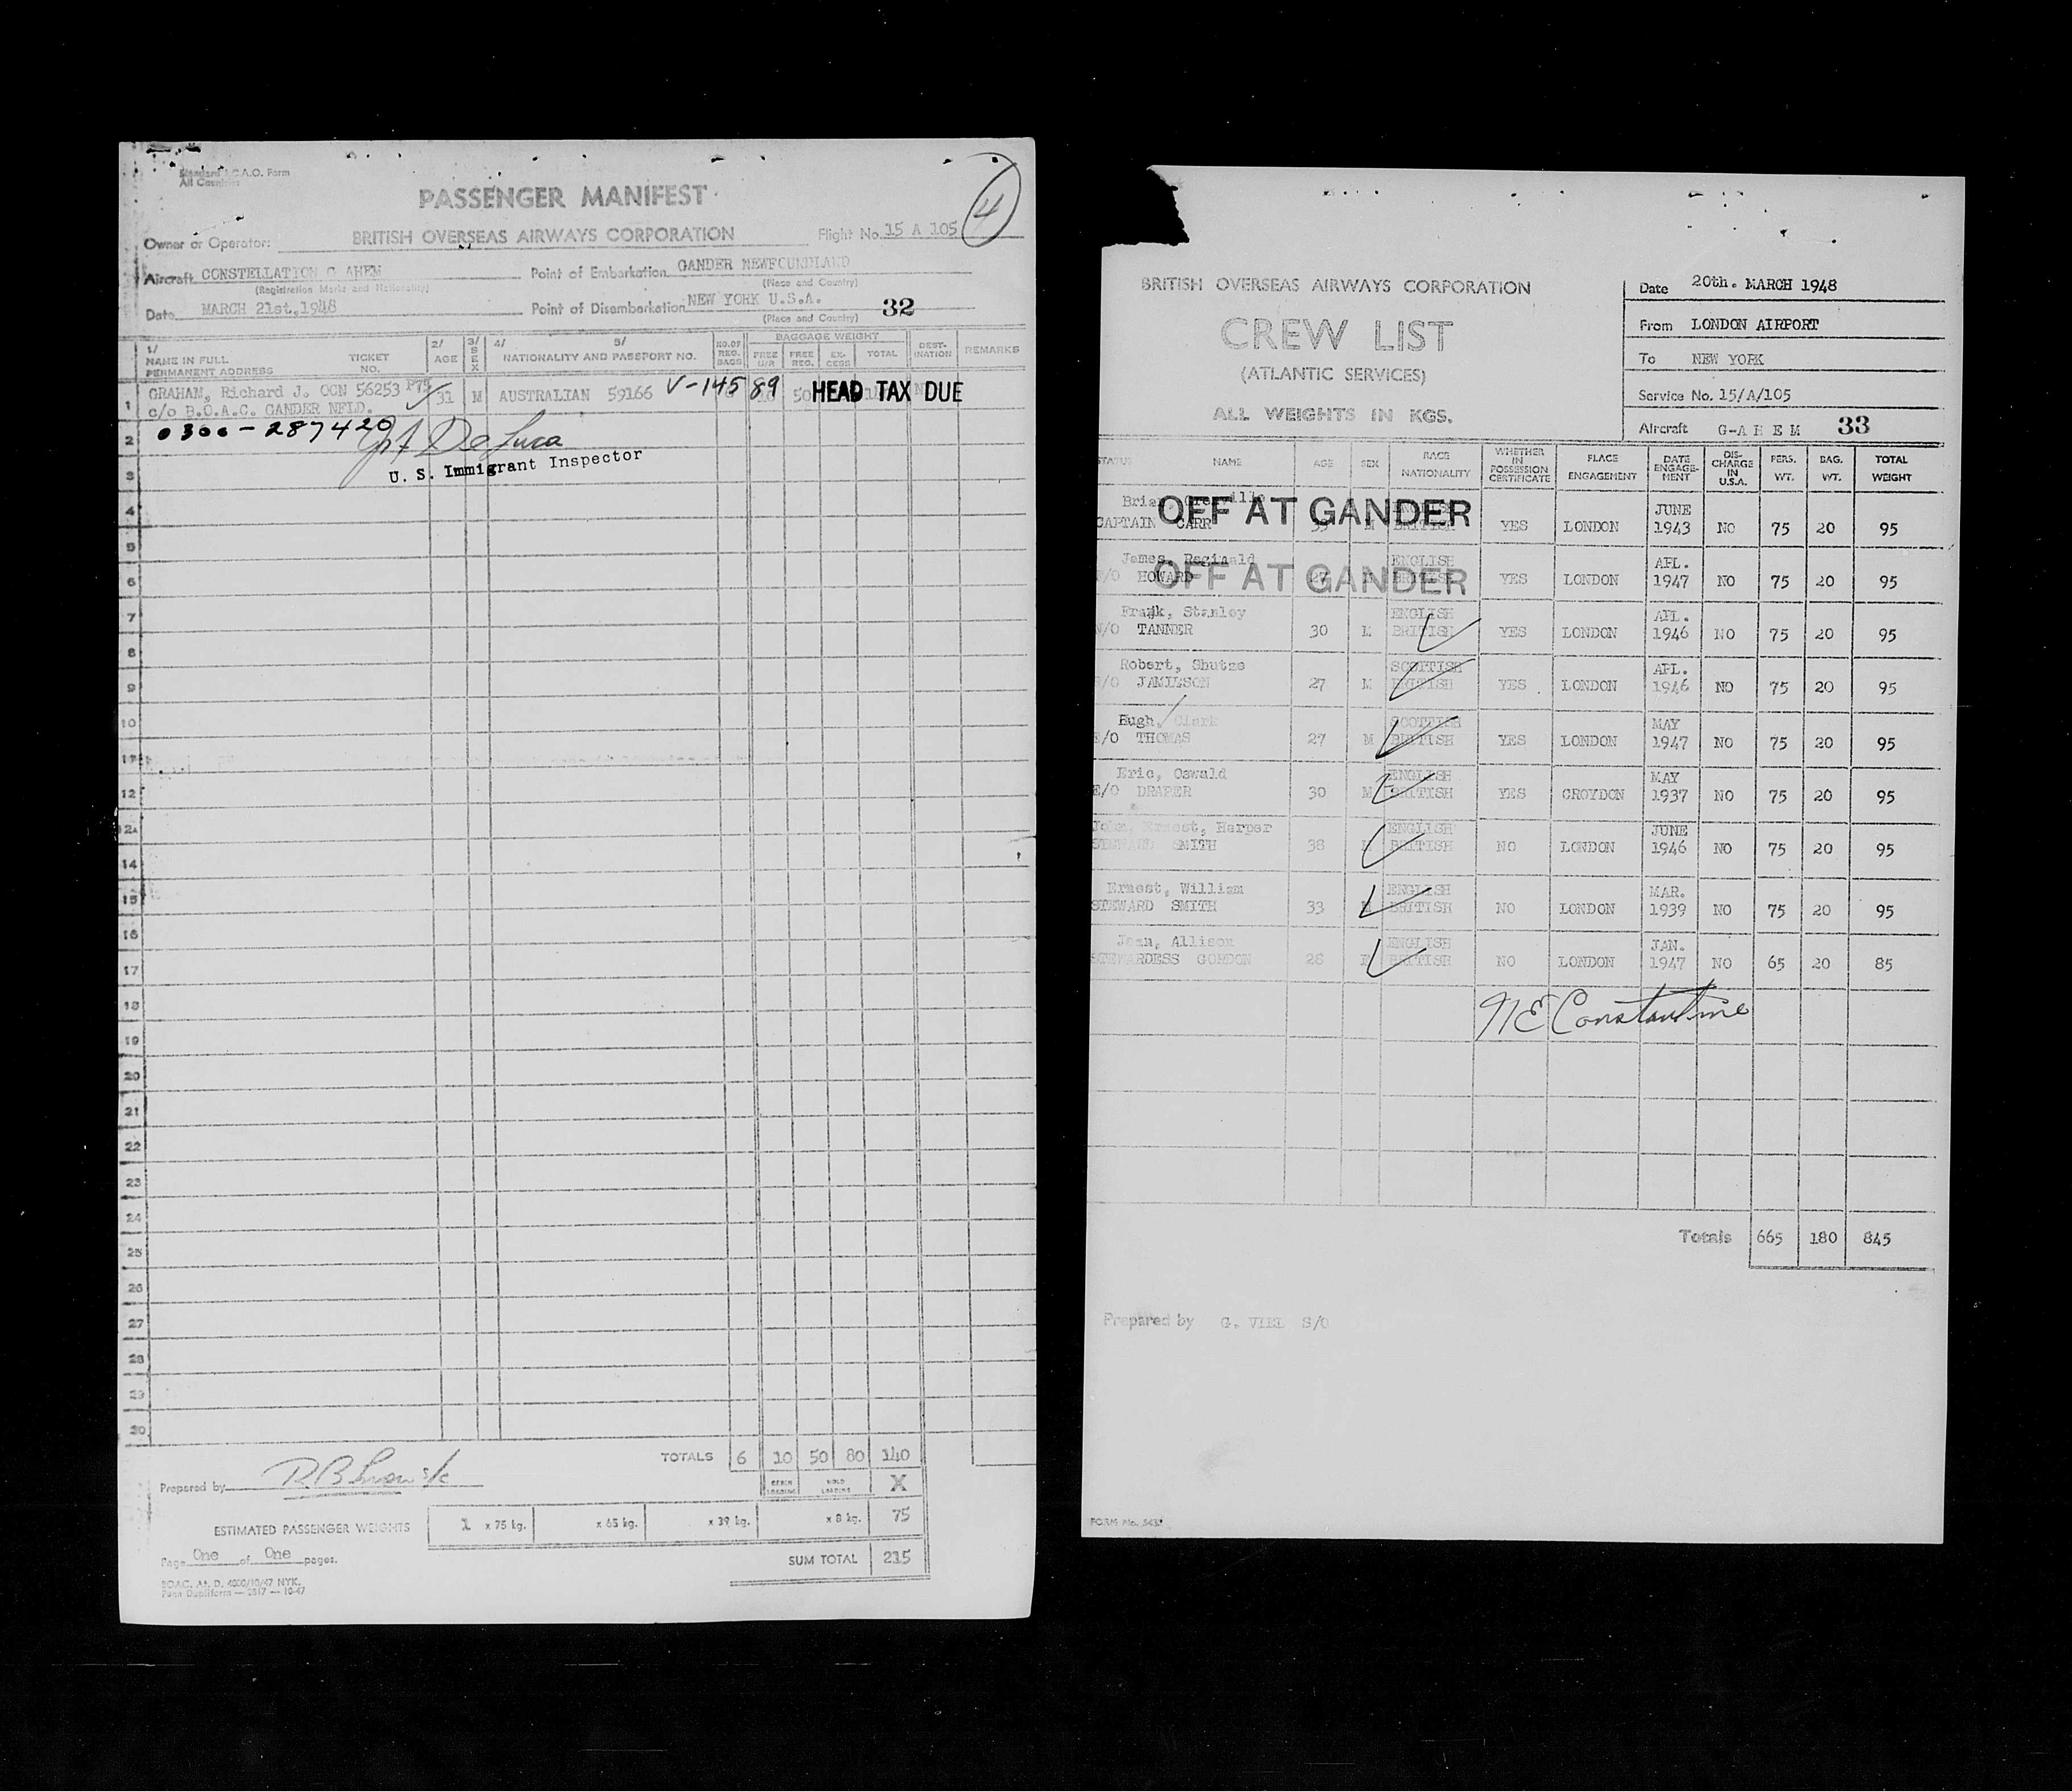 Standard I.C.A.O. Form
All Countries
PASSENGER MANIFEST
4
Owner or Operator: BRITISH OVERSEAS AIRWAYS CORPORATION Flight No. 15 A 105
Aircraft CONSTELLATION G AHEM Point of Embarkation GANDER NEWFOUNDLAND
(Registration Marks and Nationality) (Place and Country)
Date MARCH 21st, 1948 Point of Disembarkation NEW YORK U.S.A. 32
(Place and Country)
1/ NAME IN FULL PERMANENT ADDRESS TICKET NO. 2/ AGE 3/ SEX 4/ NATIONALITY AND PASSPORT NO. 5/ NO. OF REG. BAGS BAGGAGE WEIGHT FREE U/R FREE REG. EXCESS TOTAL DESTINATION REMARKS
1 GRAHAM, Richard J. OCN 56253 P75 31 M AUSTRALIAN 59166 V-14589 50 HEAD TAX DUE
c/o B.O.A.C. GANDER NFLD.
2 0300-287420 De Luca
3 U. S. Immigrant Inspector
4
5
6
7
8
9
10
11
12
12A
14
15
16
17
18
19
20
21
22
23
24
25
26
27
28
29
30
TOTALS 6 10 50 80 140
Prepared by CABIN LOADING HOLD LOADING X
ESTIMATED PASSENGER WEIGHTS 1 x 75 kg. x 65 kg. x 39 kg. x 8 kg. 75
Page One of One pages. SUM TOTAL 215
BOAC. At. D. 4000/10/47 NYK.
Penn Dupliform — 2817 — 10-47
BRITISH OVERSEAS AIRWAYS CORPORATION
CREW LIST
(ATLANTIC SERVICES)
ALL WEIGHTS IN KGS.
Date 20th. MARCH 1948
From LONDON AIRPORT
To NEW YORK
Service No. 15/A/105
Aircraft G-A H E M 33
STATUS NAME AGE SEX RACE NATIONALITY WHETHER IN POSSESSION CERTIFICATE PLACE ENGAGEMENT DATE ENGAGEMENT DISCHARGE IN U.S.A. PERS. WT. BAG. WT. TOTAL WEIGHT
OFF AT GANDER
CAPTAIN CARR BRITISH YES LONDON JUNE 1943 NO 75 20 95
James, Reginald ENGLISH APL.
HOWARD 27 M BRITISH YES LONDON 1947 NO 75 20 95
OFF AT GANDER
Frank, Stanley ENGLISH APL.
N/O TANNER 30 M BRITISH YES LONDON 1946 NO 75 20 95
Robert, Shutze SCOTTISH APL.
JAMIESON 27 M BRITISH YES LONDON 1946 NO 75 20 95
Hugh, Clark SCOTTISH MAY
E/O THOMAS 27 M BRITISH YES LONDON 1947 NO 75 20 95
Eric, Oswald ENGLISH MAY
E/O DRAPER 30 M BRITISH YES CROYDON 1937 NO 75 20 95
John, Ernest, Harper ENGLISH JUNE
STEWARD SMITH 38 M BRITISH NO LONDON 1946 NO 75 20 95
Ernest, William ENGLISH MAR.
STEWARD SMITH 33 M BRITISH NO LONDON 1939 NO 75 20 95
Jean, Allison ENGLISH JAN.
STEWARDESS GORDON 26 F BRITISH NO LONDON 1947 NO 65 20 85
N E Constantine
Totals 665 180 845
Prepared by G. VIEL S/O
FORM No.